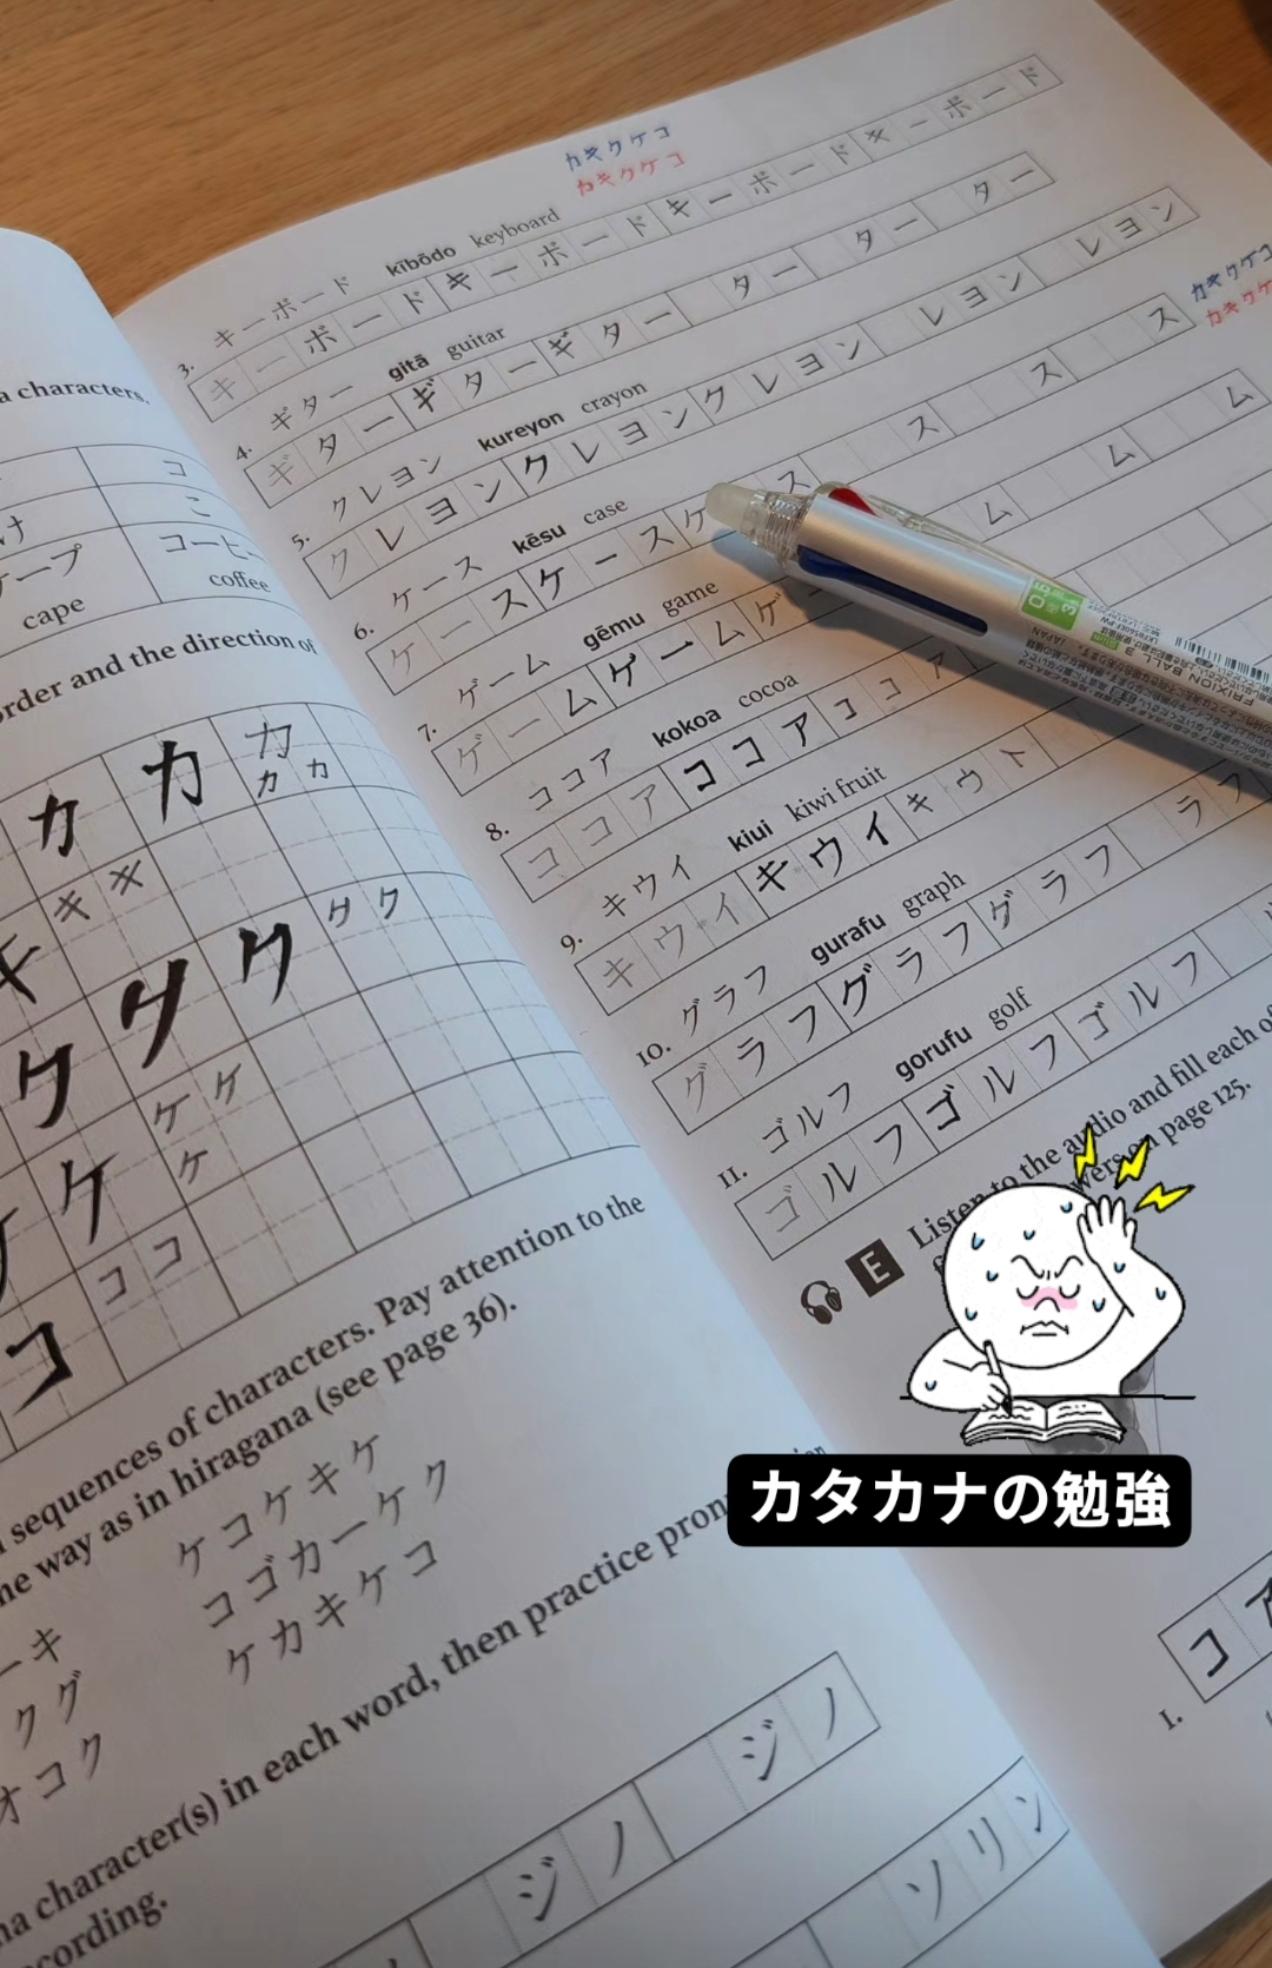 a characters.
コ
け
こ
ープ
コーヒー
cape
coffee
order and the direction of
カ カ カ
カ カ
キ キ キ
ク ク ク ク ク
ケ ケ ケ
ケ
コ コ コ
sequences of characters. Pay attention to the
way as in hiragana (see page 36).
ケコケキケ
コゴカーケク
ケカキケコ
ーキ
クグ
オコク
character(s) in each word, then practice
ジノ ジノ
ソリン
カキクケコ
カキクケコ
3. キーボード kībōdo keyboard
キーボードキーボードキーボードキーボード
4. ギター gitā guitar
ギターギターギター ター ター ター
5. クレヨン kureyon crayon
クレヨンクレヨンクレヨン レヨン レヨン
カキクケコ
カキクケ
6. ケース kēsu case
ケースケースケ ス ス ス ス
7. ゲーム gēmu game
ゲームゲームゲ ム ム ム
8. ココア kokoa cocoa
ココアココアココア
9. キウイ kiui kiwi fruit
キウイキウイキウト
10. グラフ gurafu graph
グラフグラフグラフ ラフ
11. ゴルフ gorufu golf
ゴルフゴルフゴルフ
E Listen to the audio and fill each of
on page 125.
FRIXION BALL 3
0.5
JAPAN
カタカナの勉強
1. コア